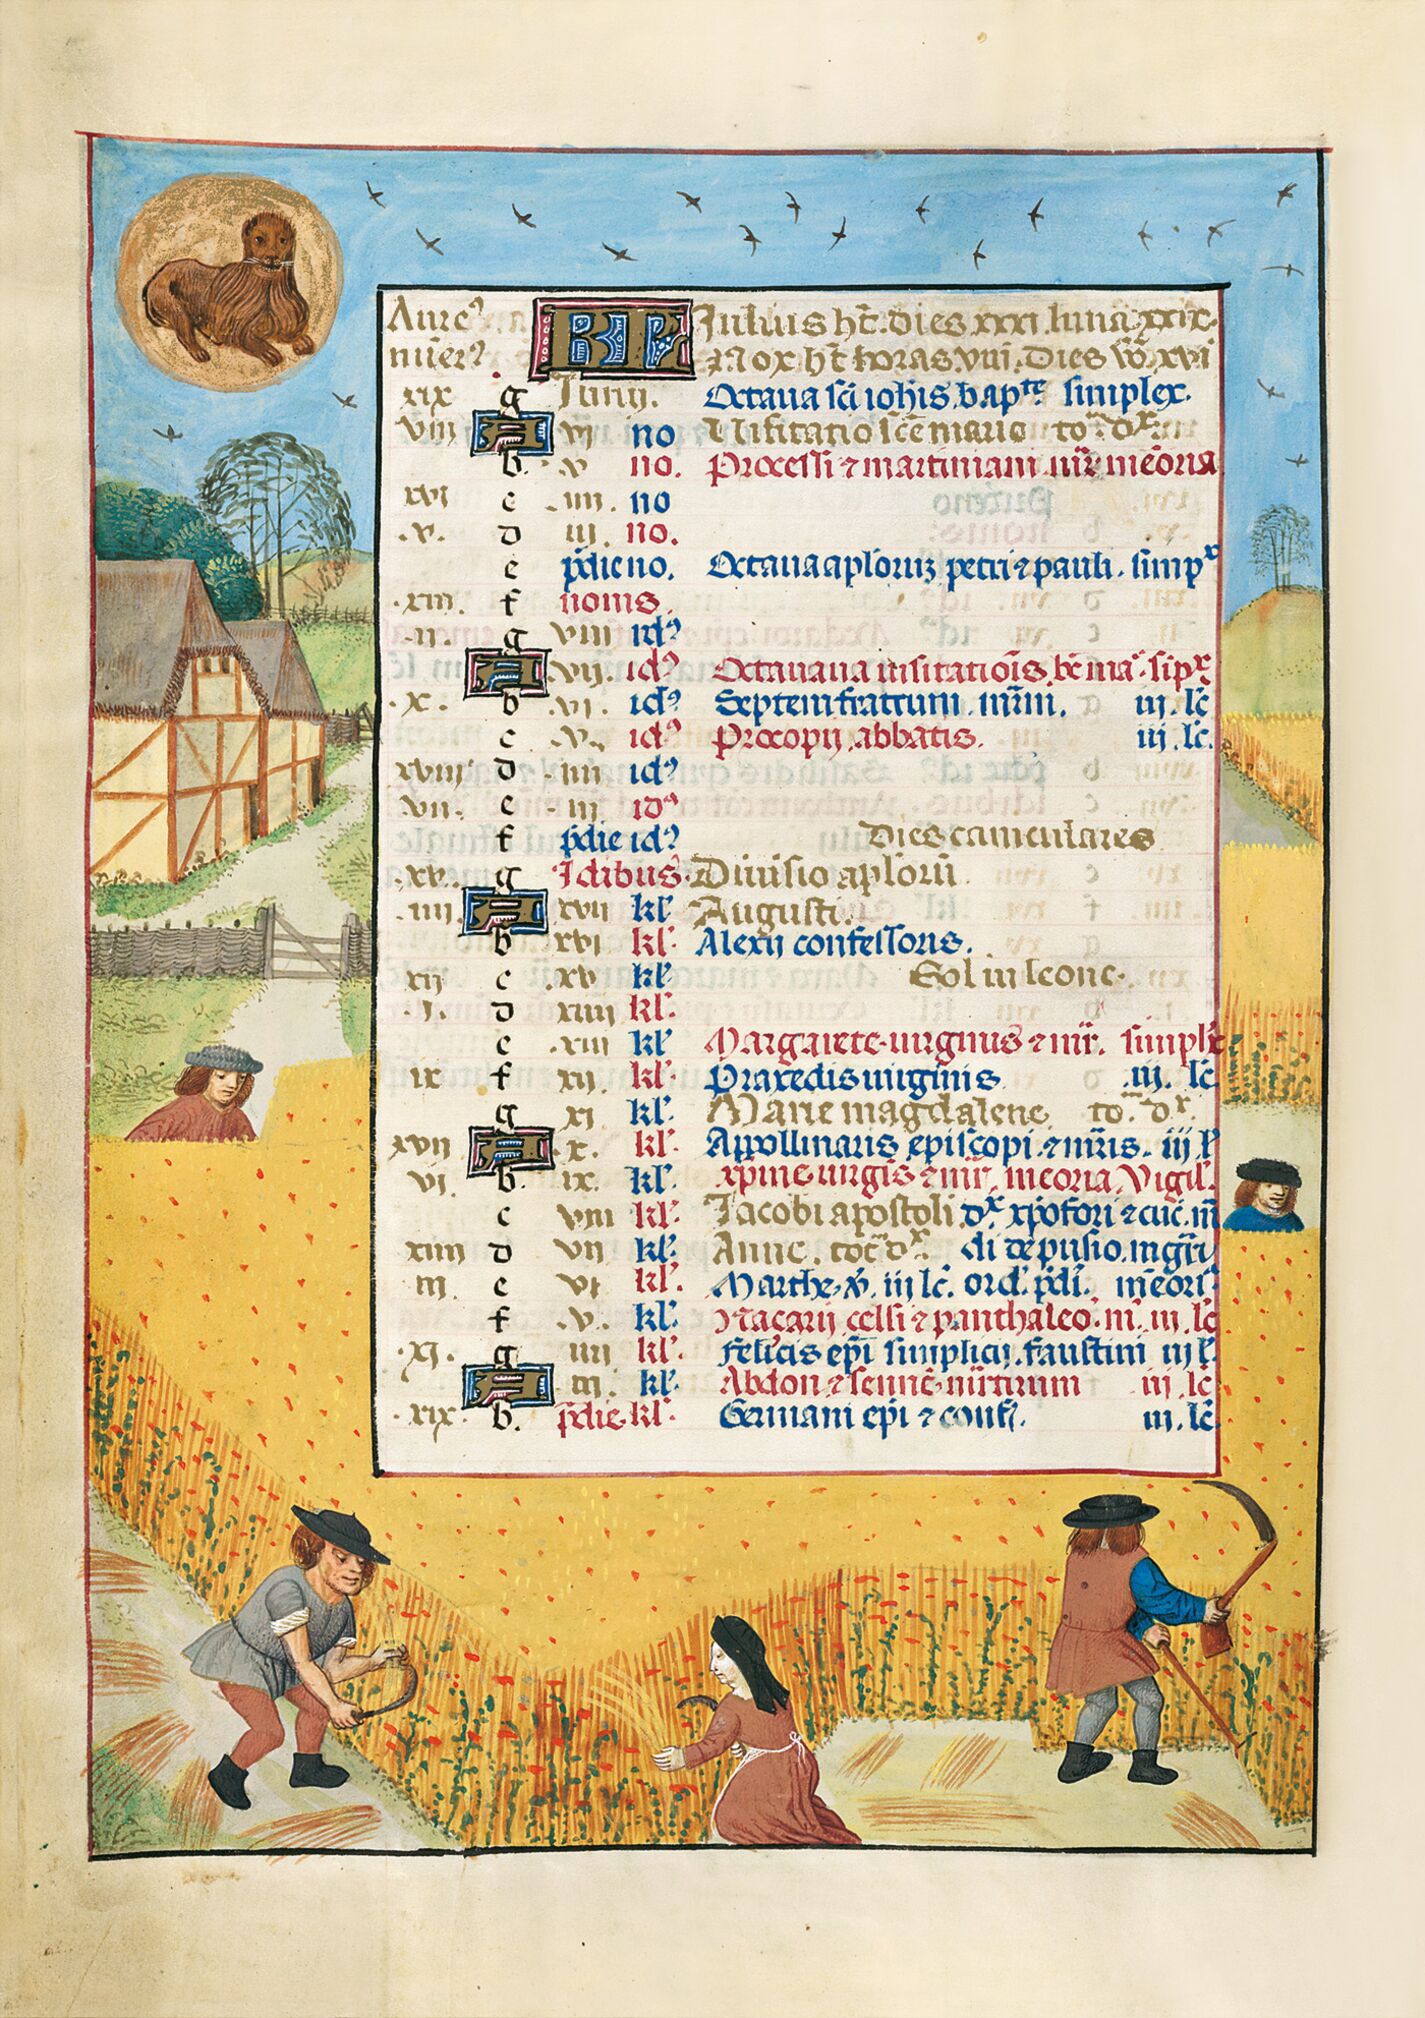 Aure⁹ KL Julius ht̄. dies xxxi. luna xxix.
nūer⁹ Nox. ht̄ horas. viii. Dies v̄o xvi
xix g Junij. Octaua sci iohis. bapᵗᵉ simplex.
viii A vi no Uisitatio sc̄e marie to. dx.
b. v no. Processi ⁊ martiniani mr̄ mēoria
xvi c iiii. no
v. d iii. no.
e pdie no. Octaua aplorum petri ⁊ pauli. simpˣ
xiii. f nonis.
ii. g viii id⁹
A vii. id⁹ Octauaua uisitatiōis. bē ma. sipˣ
x. b vi. id⁹ Septem fratrum. mr̄m. iii. lc̄
c v. id⁹ Procopij abbatis. iii. lc.
xviii d iiii id⁹
vii. e iii id⁹
f pdie id⁹ Dies caniculares
xv. g Idibus. Diuisio aplorū
iiii. A xvii kl Augusti.
b xvi kl. Alexij confessoris.
xij c xv kl Sol in leone.
j. d xiiii kl.
e xiii kl Margarete. uirginis ⁊ mr̄. simpl
ix f xij. kl. Praxedis uirginis iij. lc
g xj kl. Marie magdalene to. dˣ.
xvii A x. kl. Appollinaris episcopi. ⁊ mr̄is. iij l
vi. b. ix. kl. xp̄ine uirgis ⁊ mr̄. meoria. Vigil.
c viii kl. Jacobi apostoli dˣ xp̄ofori ⁊ cuc. m̄
xiiii d vii kl. Anne. toc̄ dˣ.
iii. e vi kl. Marthe. v̄. iij lc̄. ord. pdi. mēori
f v. kl. Nazarij celsi ⁊ panthaleo. m̄. iii. lc
xj. g iiii kl. felicis ep̄i simplicij. faustini iij l.
A iii. kl. Abdon ⁊ sennē. mr̄tirum iii. lc
xix. b. pdie. kl. Germani ep̄i ⁊ conf. iii. lc̄